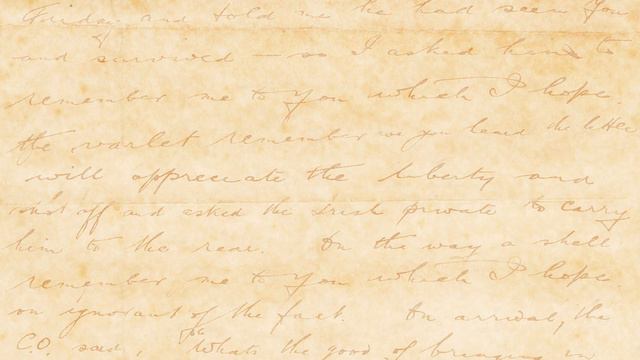 Friday and told me he had seen you
and survived — so I asked him to
remember me to you which I hope.
the varlet remember we you heard the letter
will appreciate the liberty and
shot off and asked the Irish private to carry
him to the rear. On the way a shell
remember me to you which I hope.
on ignorant of the fact. On arrival, the
C.O. said, "Whats the good of bringing in